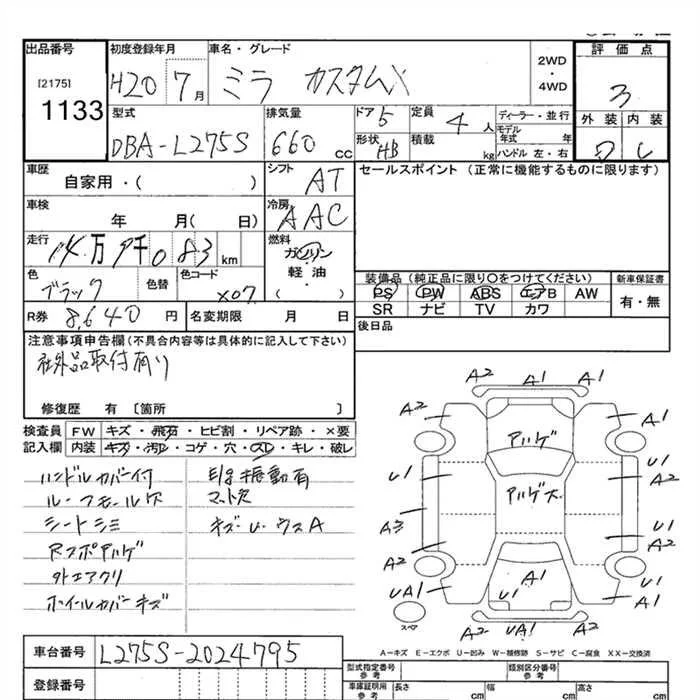 出品番号 初度登録年月 車名・グレード 2WD・4WD 評価点
[2175] 1133 H20 7月 ミラ カスタムX 3
外装 内装
型式 排気量 ドア 5 定員 4人 ディーラー・並行
DBA-L275S 660cc 形状 HB 積載 kg モデル年式 年 ハンドル 左・右
車歴 シフト セールスポイント (正常に機能するものに限ります)
自家用・( ) AT
車検 冷房
年 月( 日) AAC
走行 燃料
14万 9千083km ガソリン
軽油
( )
色 色替 色コード 装備品(純正品に限り○をつけてください) 新車保証書
ブラック X07 PS PW ABS エアB AW 有・無
SR ナビ TV カワ
R券 8,640円 名変期限 月 日 後日品
注意事項申告欄(不具合内容等は具体的に記入して下さい)
社外品取付有り
修復歴 有 〔箇所 〕
検査員 FW キズ・飛石・ヒビ割・リペア跡・×要
記入欄 内装 キズ・汚れ・コゲ・穴・スレ・キレ・破レ
ハンドルカバー付 E/g振動有
ルーフモール欠 マット欠
シートシミ キズ・U・ウスA
Rスポアルゲ
外エアクリ
ホイールカバーキズ
A2 A1 A1
A2 A1
アルゲ
U1 U1 A2
アルゲ大
A3 U1
A2 A2
UA1 U1 A1 U1 A1
A2 UA1 A2
スペア
A-キズ E-エクボ U-凹み W-補修跡 S-サビ C-腐食 XX-交換済
車台番号 L275S-2024795
登録番号
型式指定番号 参考 類別区分番号 参考
車庫証明用 参考 長さ cm 幅 cm 高さ cm